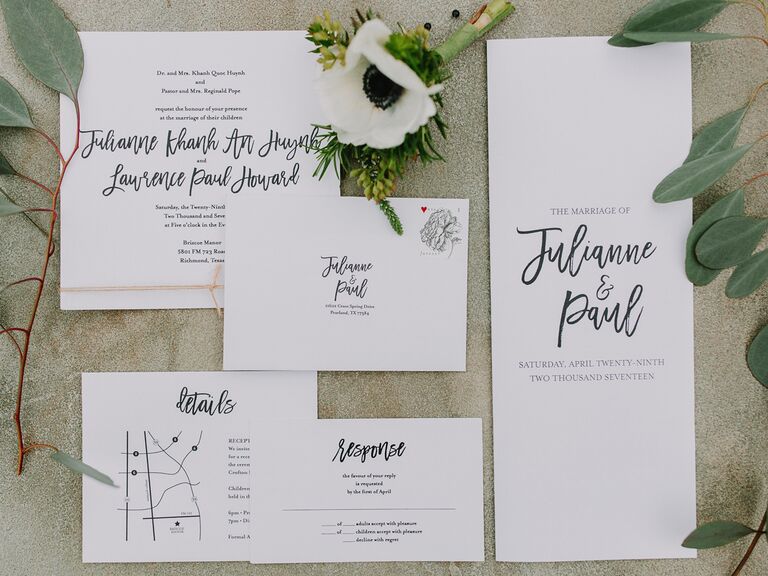 Dr. and Mrs. Khanh Quoc Huynh
and
Pastor and Mrs. Reginald Pope
request the honour of your presence
at the marriage of their children
Julianne Khanh An Huynh
and
Lawrence Paul Howard
Saturday, the Twenty-Ninth
Two Thousand and Seve
at Five o'clock in the Eve
Briscoe Manor
5801 FM 723 Road
Richmond, Texa
Julianne
&
Paul
Pearland, TX 77584
THE MARRIAGE OF
Julianne
&
Paul
SATURDAY, APRIL TWENTY-NINTH
TWO THOUSAND SEVENTEEN
details
RECEPT
We invite
for a rece
the cerem
Crofton
Children
held in th
6pm
7pm
Formal A
BRISCOE
MANOR
response
the favour of your reply
is requested
by the first of April
of adults accept with pleasure
of children accept with pleasure
decline with regret